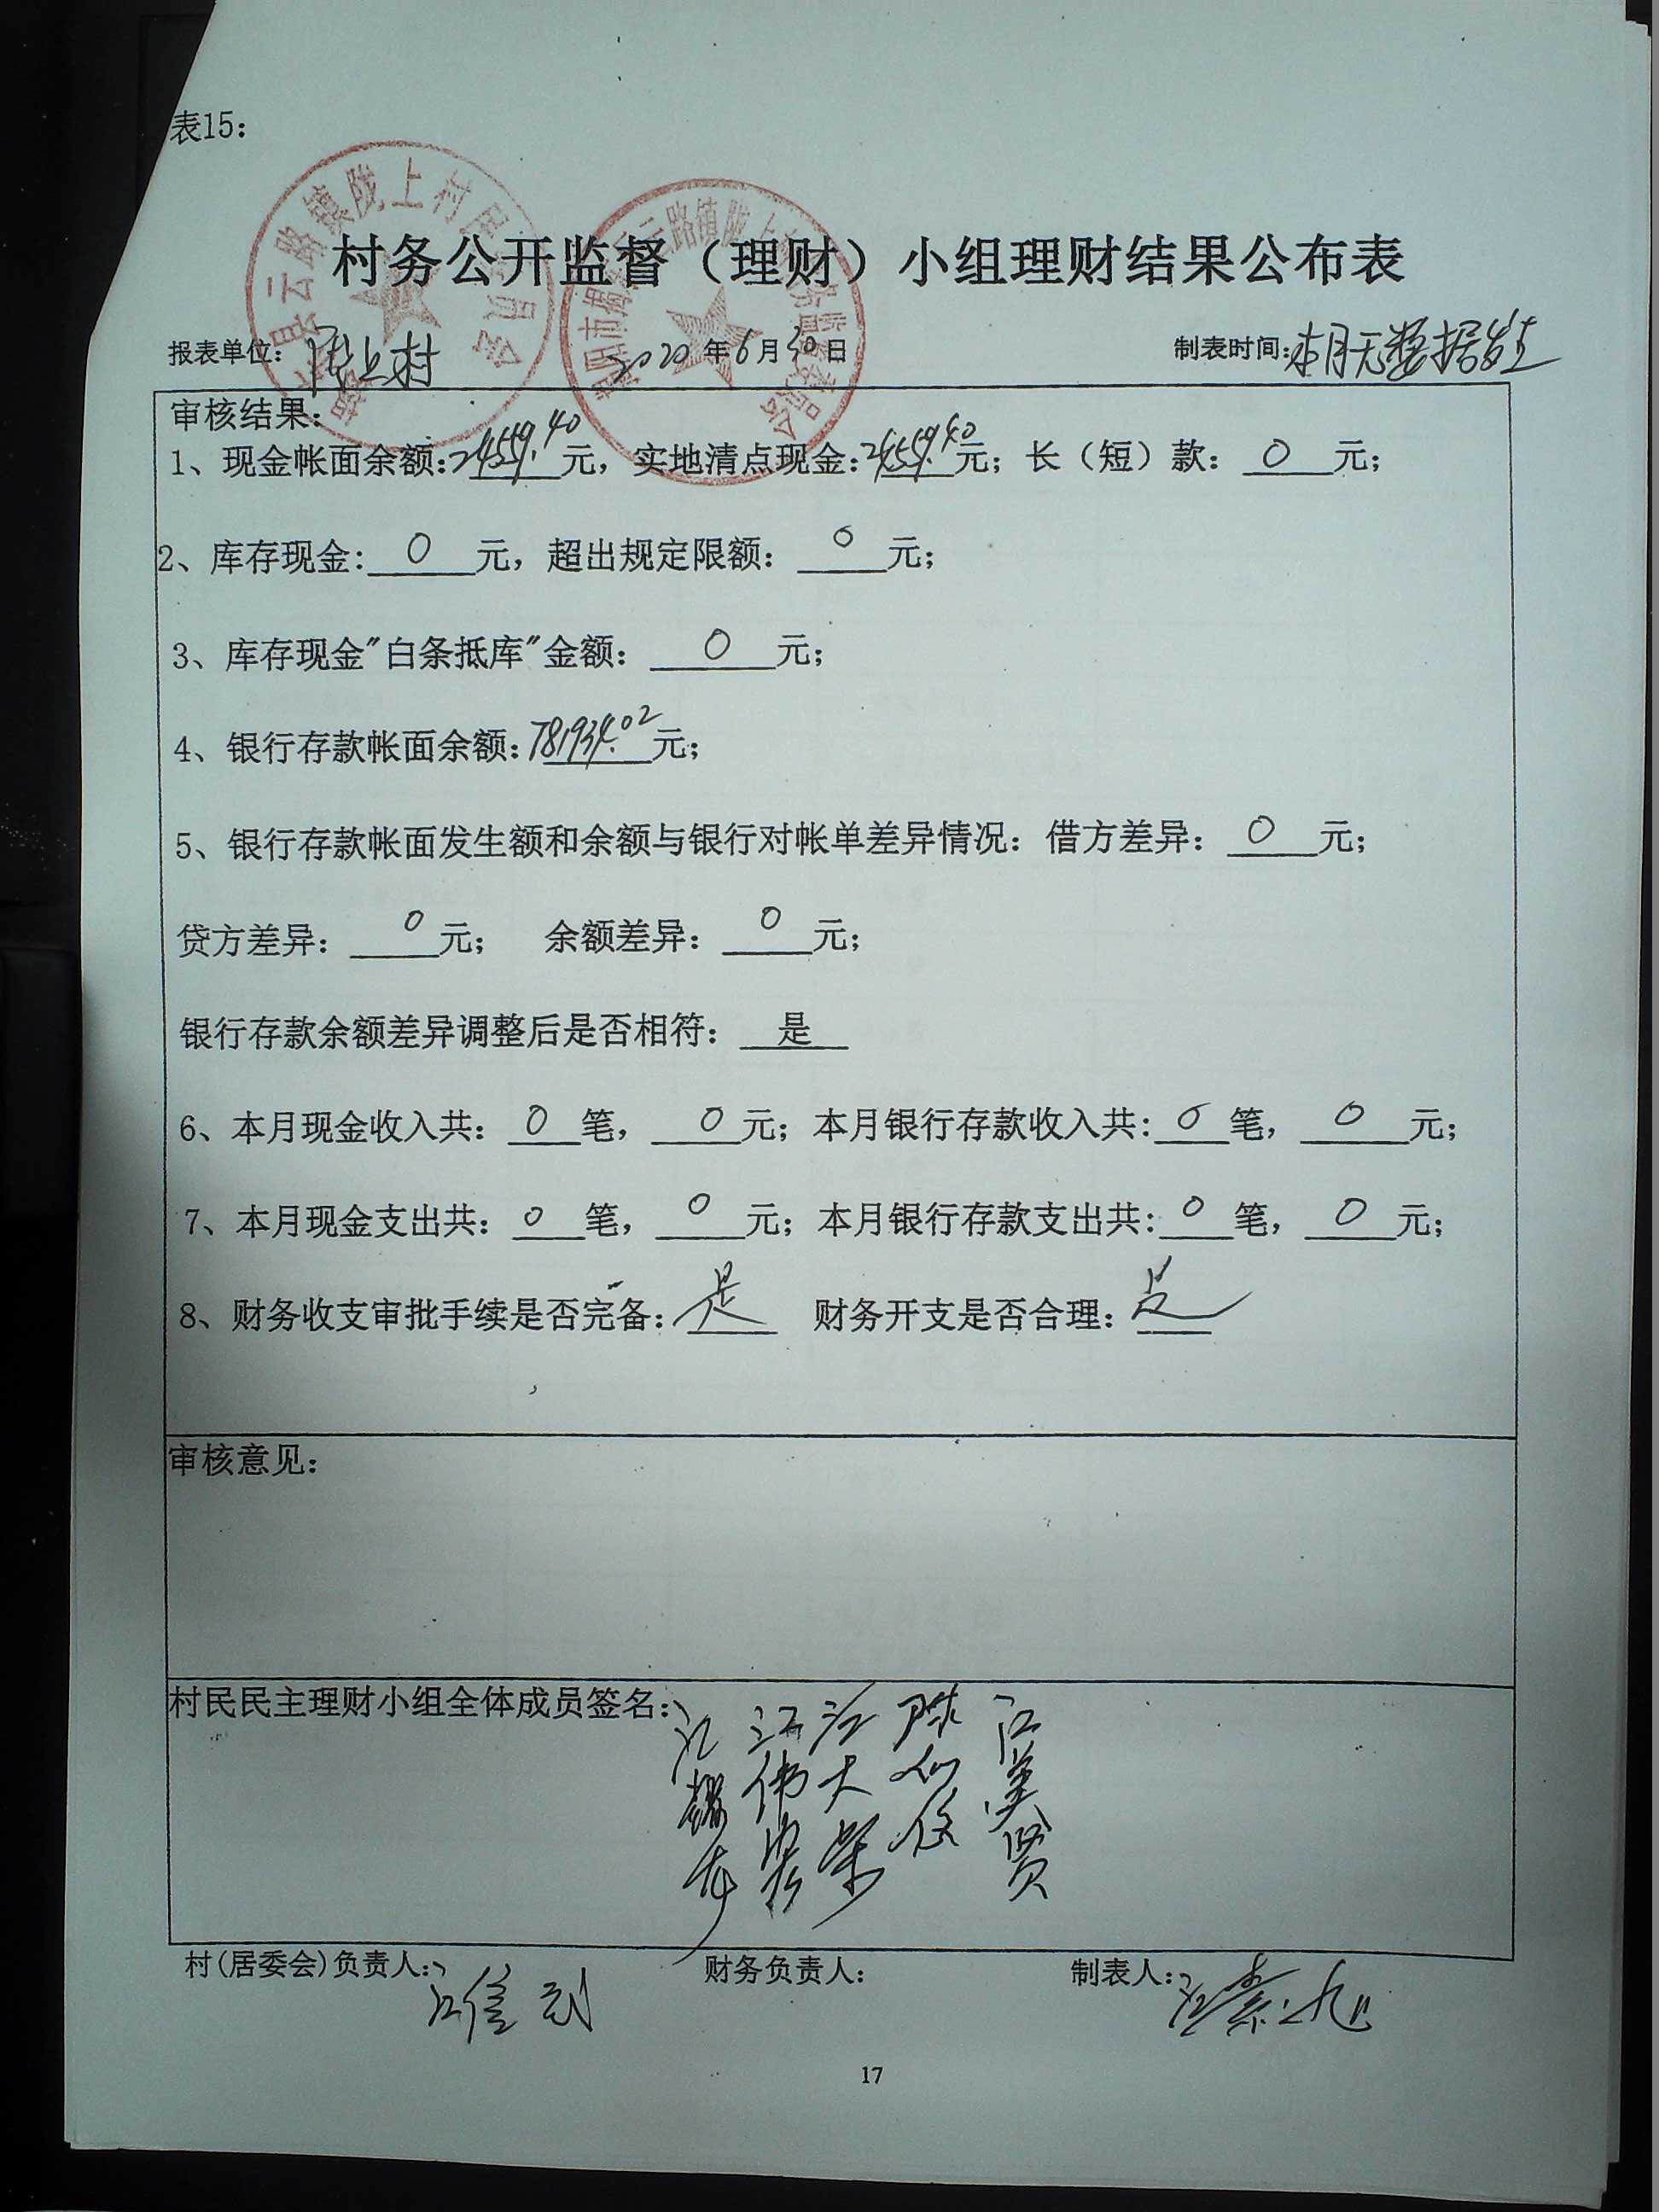 表15：
村务公开监督（理财）小组理财结果公布表
报表单位：陇上村 2020年6月30日 制表时间：本月无数据发生
审核结果：
1、现金帐面余额：24559.40元，实地清点现金：24559.40元；长（短）款：0元；
2、库存现金：0元，超出规定限额：0元；
3、库存现金"白条抵库"金额：0元；
4、银行存款帐面余额：781934.02元；
5、银行存款帐面发生额和余额与银行对帐单差异情况：借方差异：0元；
贷方差异：0元； 余额差异：0元；
银行存款余额差异调整后是否相符：是
6、本月现金收入共：0笔，0元；本月银行存款收入共：0笔，0元；
7、本月现金支出共：0笔，0元；本月银行存款支出共：0笔，0元；
8、财务收支审批手续是否完备：是 财务开支是否合理：是
审核意见：
村民民主理财小组全体成员签名：
村(居委会)负责人： 财务负责人： 制表人：
17